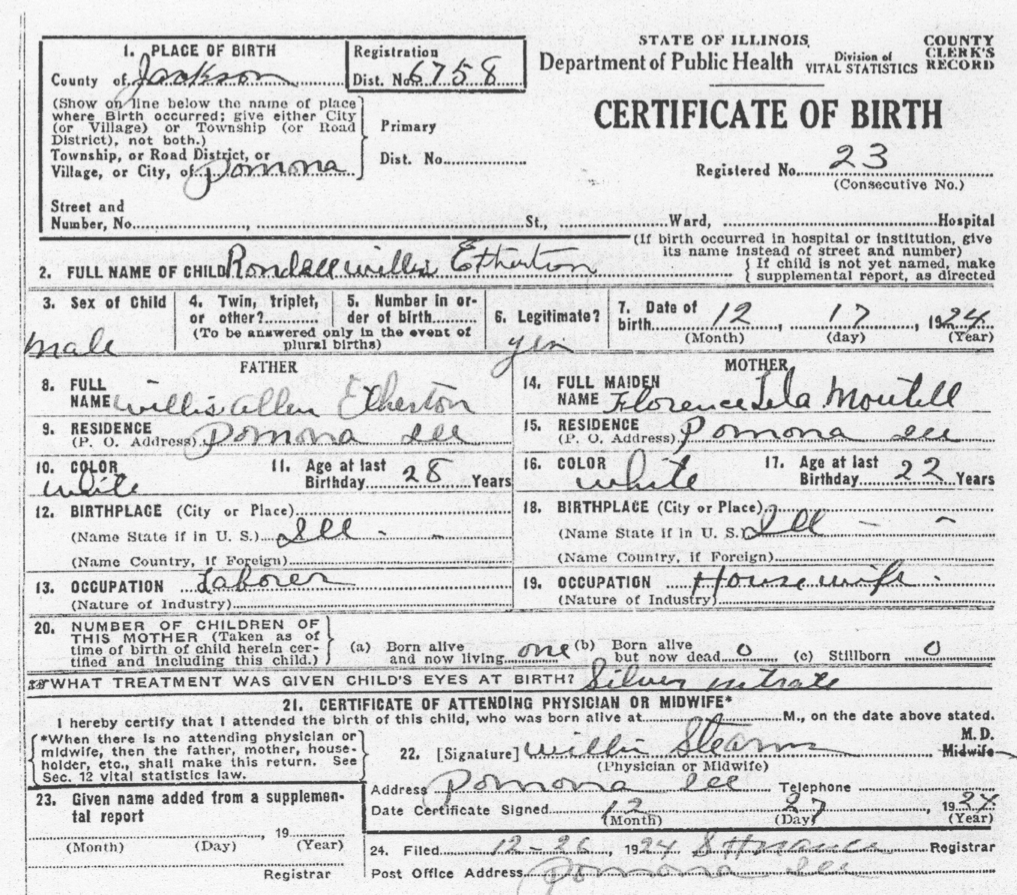 STATE OF ILLINOIS
Department of Public Health
Division of
VITAL STATISTICS
COUNTY
CLERK'S
RECORD
CERTIFICATE OF BIRTH
Registered No. 23
(Consecutive No.)
1. PLACE OF BIRTH
County of Jackson
Registration
Dist. No. 6758
(Show on line below the name of place
where Birth occurred; give either City
(or Village) or Township (or Road
District), not both.)
Township, or Road District, or
Village, or City, of Pomona
Primary
Dist. No.
Street and
Number, No. , St., Ward, Hospital
(If birth occurred in hospital or institution, give
its name instead of street and number)
2. FULL NAME OF CHILD Rondall Willis Etherton
If child is not yet named, make
supplemental report, as directed
3. Sex of Child
male
4. Twin, triplet,
or other?
5. Number in or-
der of birth
(To be answered only in the event of
plural births)
6. Legitimate?
yes
7. Date of
birth 12, 17, 1924
(Month) (day) (Year)
FATHER
8. FULL
NAME Willis Allen Etherton
9. RESIDENCE
(P. O. Address) Pomona Ill
10. COLOR
white
11. Age at last
Birthday 28 Years
12. BIRTHPLACE (City or Place)
(Name State if in U. S.) Ill - -
(Name Country, if Foreign)
13. OCCUPATION Laborer
(Nature of Industry)
MOTHER
14. FULL MAIDEN
NAME Florence Lela
15. RESIDENCE
(P. O. Address) Pomona Ill
16. COLOR
white
17. Age at last
Birthday 22 Years
18. BIRTHPLACE (City or Place)
(Name State if in U. S.) Ill - -
(Name Country, if Foreign)
19. OCCUPATION House wife
(Nature of Industry)
20. NUMBER OF CHILDREN OF
THIS MOTHER (Taken as of
time of birth of child herein cer-
tified and including this child.)
(a) Born alive
and now living one
(b) Born alive
but now dead 0
(c) Stillborn 0
WHAT TREATMENT WAS GIVEN CHILD'S EYES AT BIRTH? Silver nitrate
21. CERTIFICATE OF ATTENDING PHYSICIAN OR MIDWIFE*
I hereby certify that I attended the birth of this child, who was born alive at M., on the date above stated.
*When there is no attending physician or
midwife, then the father, mother, house-
holder, etc., shall make this return. See
Sec. 12 vital statistics law.
22. [Signature] Willis Stearns
M. D.
Midwife
(Physician or Midwife)
Address Pomona Ill Telephone
Date Certificate Signed 12 27, 1924
(Month) (Day) (Year)
23. Given name added from a supplemen-
tal report
, 19
(Month) (Day) (Year)
Registrar
24. Filed 12-26, 1924 Registrar
Post Office Address Pomona Ill